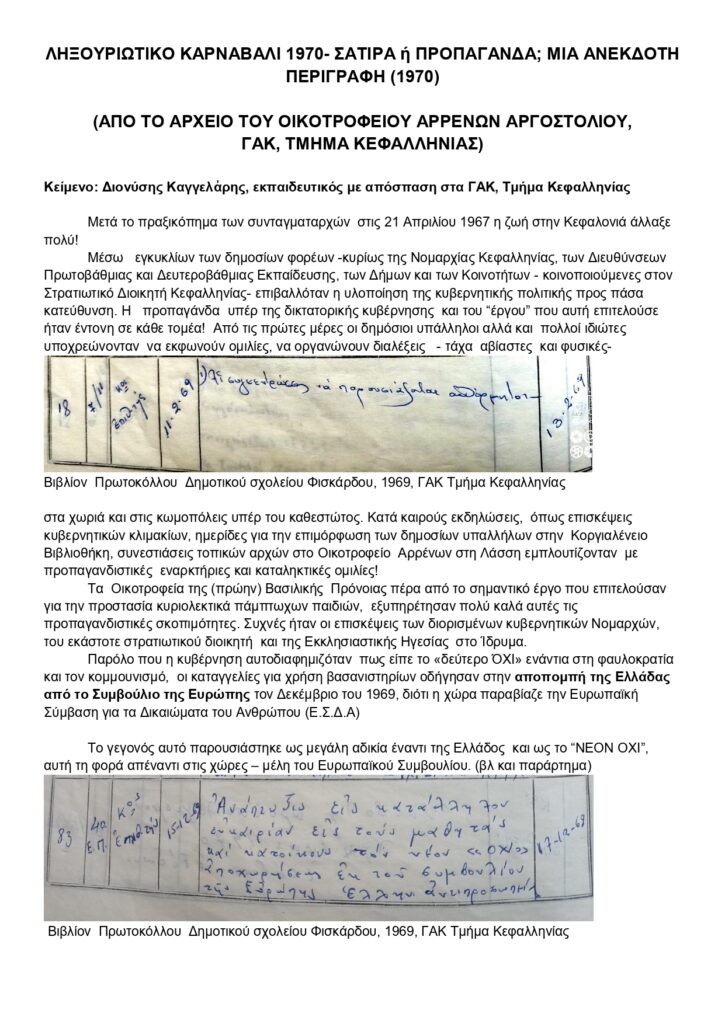 ΛΗΞΟΥΡΙΩΤΙΚΟ ΚΑΡΝΑΒΑΛΙ 1970- ΣΑΤΙΡΑ ή ΠΡΟΠΑΓΑΝΔΑ; ΜΙΑ ΑΝΕΚΔΟΤΗ
ΠΕΡΙΓΡΑΦΗ (1970)
(ΑΠΟ ΤΟ ΑΡΧΕΙΟ ΤΟΥ ΟΙΚΟΤΡΟΦΕΙΟΥ ΑΡΡΕΝΩΝ ΑΡΓΟΣΤΟΛΙΟΥ,
ΓΑΚ, ΤΜΗΜΑ ΚΕΦΑΛΛΗΝΙΑΣ)
Κείμενο: Διονύσης Καγγελάρης, εκπαιδευτικός με απόσπαση στα ΓΑΚ, Τμήμα Κεφαλληνίας
Μετά το πραξικόπημα των συνταγματαρχών στις 21 Απριλίου 1967 η ζωή στην Κεφαλονιά άλλαξε
πολύ!
Μέσω εγκυκλίων των δημοσίων φορέων -κυρίως της Νομαρχίας Κεφαλληνίας, των Διευθύνσεων
Πρωτοβάθμιας και Δευτεροβάθμιας Εκπαίδευσης, των Δήμων και των Κοινοτήτων - κοινοποιούμενες στον
Στρατιωτικό Διοικητή Κεφαλληνίας- επιβαλλόταν η υλοποίηση της κυβερνητικής πολιτικής προς πάσα
κατεύθυνση. Η προπαγάνδα υπέρ της δικτατορικής κυβέρνησης και του “έργου” που αυτή επιτελούσε
ήταν έντονη σε κάθε τομέα! Από τις πρώτες μέρες οι δημόσιοι υπάλληλοι αλλά και πολλοί ιδιώτες
υποχρεώνονταν να εκφωνούν ομιλίες, να οργανώνουν διαλέξεις - τάχα αβίαστες και φυσικές-
18 11-2-69 13-2-69
Βιβλίον Πρωτοκόλλου Δημοτικού σχολείου Φισκάρδου, 1969, ΓΑΚ Τμήμα Κεφαλληνίας
στα χωριά και στις κωμοπόλεις υπέρ του καθεστώτος. Κατά καιρούς εκδηλώσεις, όπως επισκέψεις
κυβερνητικών κλιμακίων, ημερίδες για την επιμόρφωση των δημοσίων υπαλλήλων στην Κοργιαλένειο
Βιβλιοθήκη, συνεστιάσεις τοπικών αρχών στο Οικοτροφείο Αρρένων στη Λάσση εμπλουτίζονταν με
προπαγανδιστικές εναρκτήριες και καταληκτικές ομιλίες!
Τα Οικοτροφεία της (πρώην) Βασιλικής Πρόνοιας πέρα από το σημαντικό έργο που επιτελούσαν
για την προστασία κυριολεκτικά πάμπτωχων παιδιών, εξυπηρέτησαν πολύ καλά αυτές τις
προπαγανδιστικές σκοπιμότητες. Συχνές ήταν οι επισκέψεις των διορισμένων κυβερνητικών Νομαρχών,
του εκάστοτε στρατιωτικού διοικητή και της Εκκλησιαστικής Ηγεσίας στο Ίδρυμα.
Παρόλο που η κυβέρνηση αυτοδιαφημιζόταν πως είπε το «δεύτερο ΌΧΙ» ενάντια στη φαυλοκρατία
και τον κομμουνισμό, οι καταγγελίες για χρήση βασανιστηρίων οδήγησαν στην αποπομπή της Ελλάδας
από το Συμβούλιο της Ευρώπης τον Δεκέμβριο του 1969, διότι η χώρα παραβίαζε την Ευρωπαϊκή
Σύμβαση για τα Δικαιώματα του Ανθρώπου (Ε.Σ.Δ.Α)
Το γεγονός αυτό παρουσιάστηκε ως μεγάλη αδικία έναντι της Ελλάδος και ως το “ΝΕΟΝ ΟΧΙ”,
αυτή τη φορά απέναντι στις χώρες – μέλη του Ευρωπαϊκού Συμβουλίου. (βλ και παράρτημα)
Ἀνάπτυξις εἰς κατάλληλον
83 Ε.Π. 15-12-69 εὐκαιρίαν εἰς τοὺς μαθητάς 17-12-69
καί κατοίκους τοῦ νέου «ΟΧΙ»
ἀποχωρήσεως ἐκ τοῦ συμβουλίου
τῆς Εὐρώπης
Βιβλίον Πρωτοκόλλου Δημοτικού σχολείου Φισκάρδου, 1969, ΓΑΚ Τμήμα Κεφαλληνίας